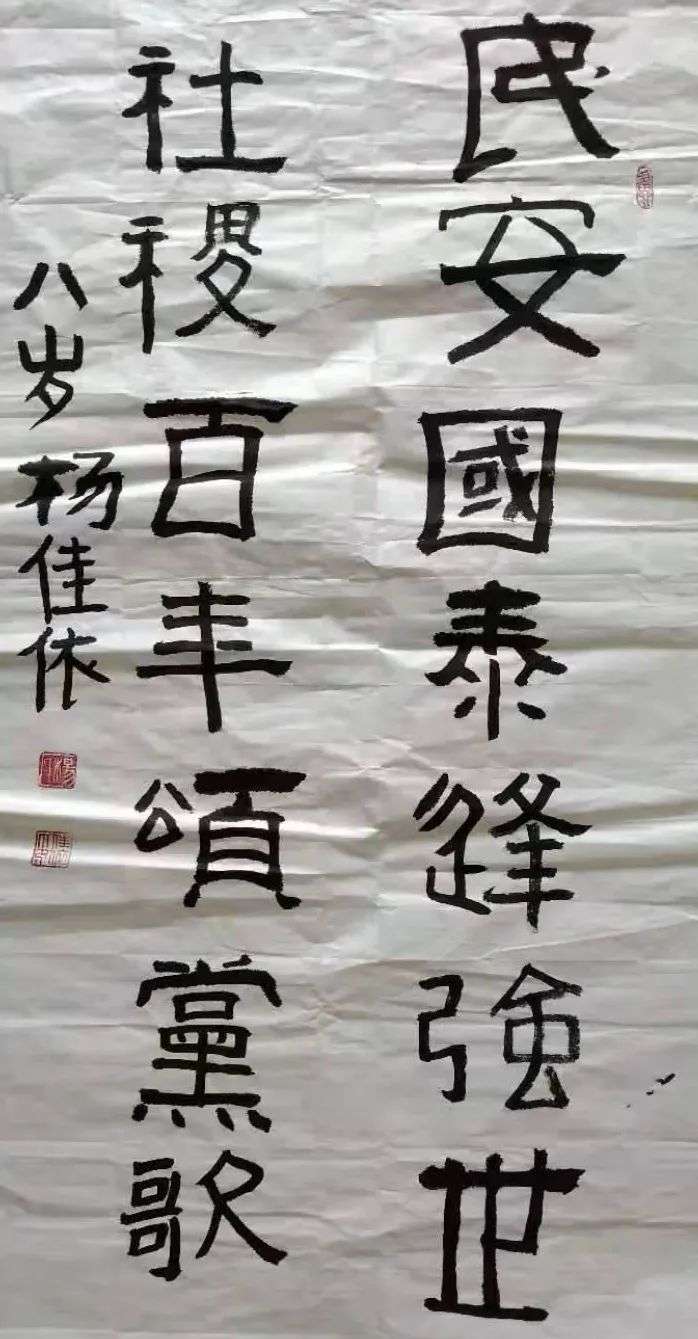 民安國泰逢強世
社稷百年頌黨歌
八岁 杨佳依